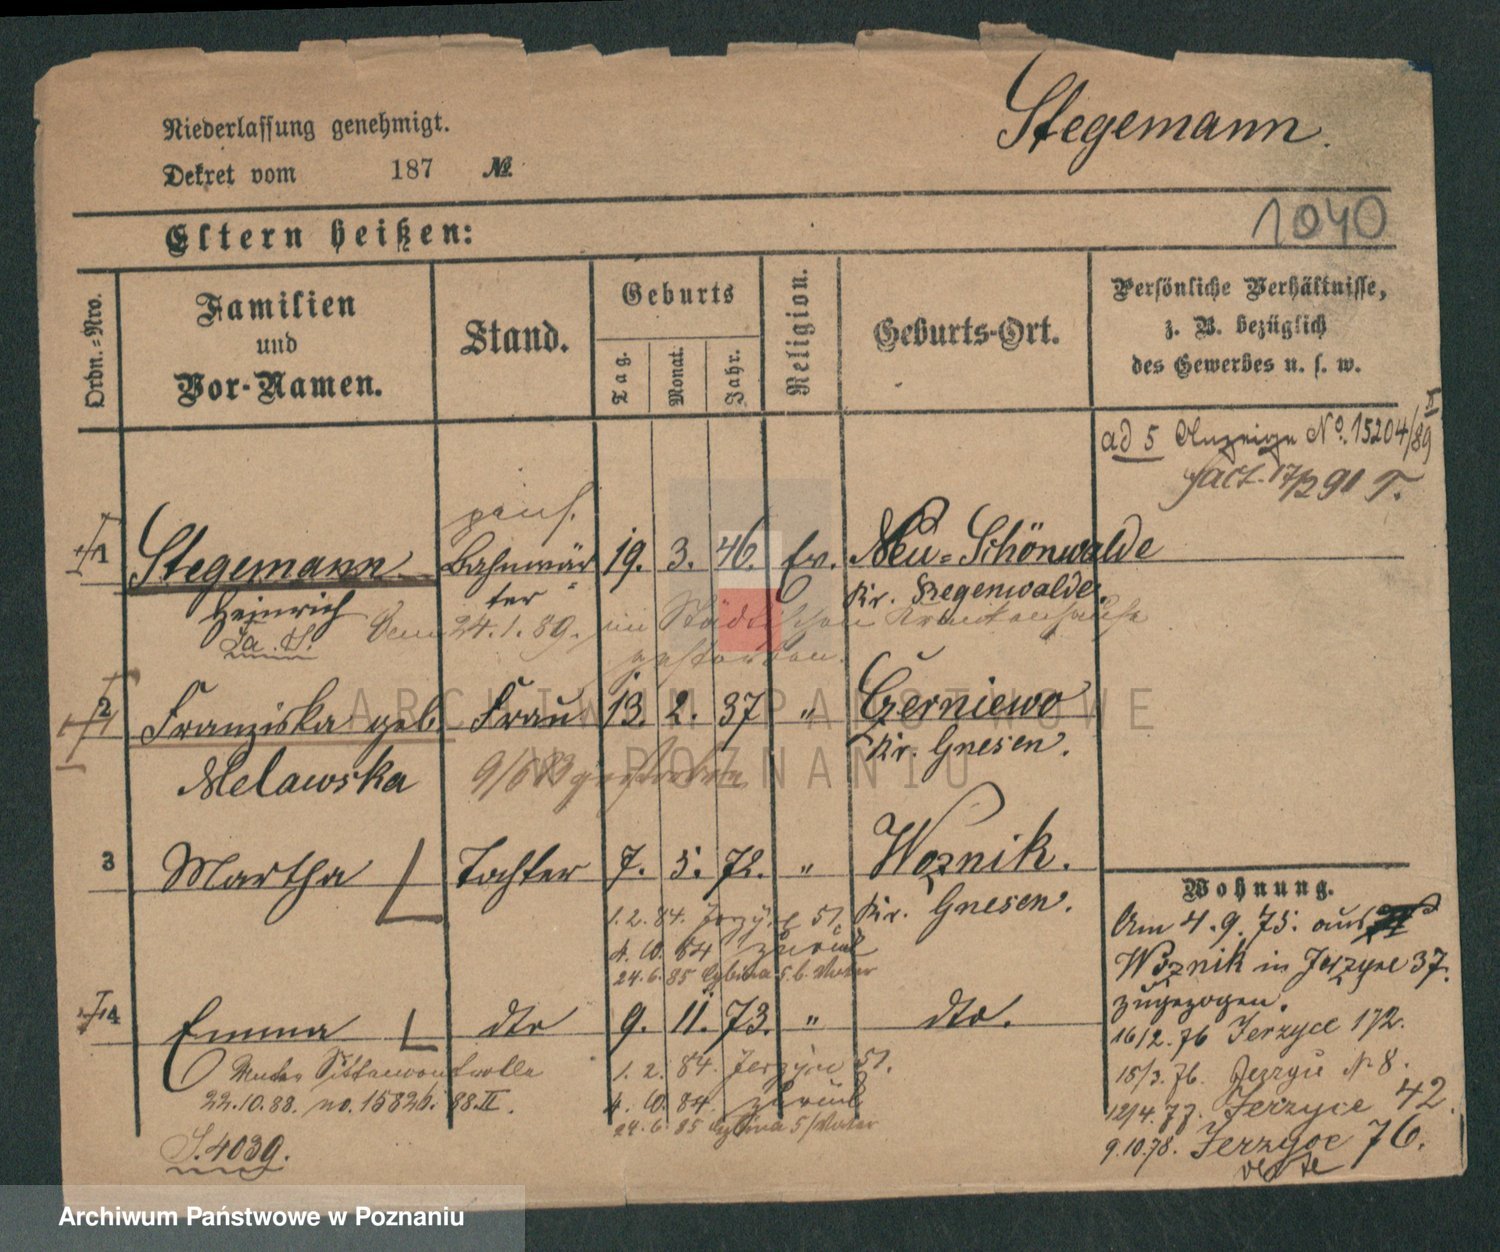 Niederlassung genehmigt.
Dekret vom 187 №
Stegemann.
1040
Eltern heißen:
Ordn.-Nro.
Familien
und
Vor-Namen.
Stand.
Geburts
Tag.
Monat.
Jahr.
Religion.
Geburts-Ort.
Persönliche Verhältnisse,
z. B. bezüglich
des Gewerbes u. s. w.
ad 5 Anzeige No. 15204/89 II
fact. 17/2 91 T.
pens.
1 Stegemann Bahnwär= 19. 3. 46. ev. Neu=Schönwalde
Heinrich ter Kr. Regenwalde.
24.1.89. im Städtischen Krankenhause
gestorben.
2 Franziska geb. Frau 13. 2. 37 " Czerniewo
Melawska Kr. Gnesen.
gestorben
3 Martha Tochter 7. 5. 72. " Woznik.
Kr. Gnesen.
1. 2. 84. 51.
4. 10. 84 zurück
24.6.85 Cybina 5 b. Vater
4 Emma dto 9. 11. 73. " dto.
Unter Sittencontrolle
22.10.88. no. 15826. 88.II.
S. 4039.
1. 2. 84. Jerzyce 51.
4. 10. 84. zurück
24.6.85 Cybina 5/Vater
Wohnung.
Am 4.9.75. aus
Woznik in Jerzyce 37.
zugezogen.
16/2. 76 Jerzyce 172.
15/3. 76. N. 8.
12/4. 77. Jerzyce 42
9.10.78. Jerzyce 76.
ARCHIWUM PAŃSTWOWE
W POZNANIU
Archiwum Państwowe w Poznaniu